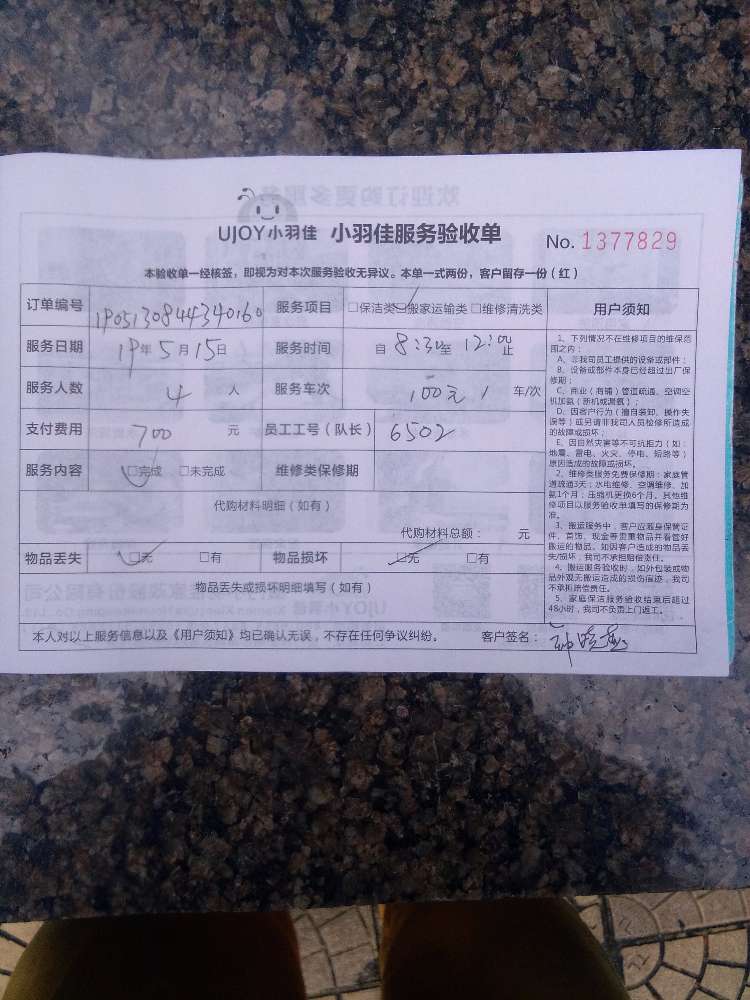 UJOY小羽佳 小羽佳服务验收单 No. 1377829
本验收单一经核签，即视为对本次服务验收无异议。本单一式两份，客户留存一份（红）
订单编号 190513084434016 服务项目 □保洁类 □搬家运输类 □维修清洗类
服务日期 19年5月15日 服务时间 自8:30至12:00止
服务人数 4 人 服务车次 100元 1 车/次
支付费用 700 元 员工工号（队长） 6502
服务内容 □完成 □未完成 维修类保修期
代购材料明细（如有）
代购材料总额： 元
物品丢失 □无 □有 物品损坏 □无 □有
物品丢失或损坏明细填写（如有）
本人对以上服务信息以及《用户须知》均已确认无误，不存在任何争议纠纷。 客户签名：
用户须知
1、下列情况不在维修项目的维保范
围之内：
A、非我司员工提供的设备或部件；
B、设备或部件本身已经超过出厂保
修期；
C、商业（商铺）管道疏通、空调空
机加氨（新机或漏氨）；
D、因客户行为（擅自装卸、操作失
误等）或另请非我司人员检修所造成
的故障或损坏；
E、因自然灾害等不可抗拒力（如：
地震、雷电、火灾、停电、短路等）
原因造成的故障或损坏。
2、维修类服务免费保修期：家庭管
道疏通3天；水电维修、空调维修、加
氨1个月；压缩机更换6个月。其他维
修项目以服务验收单填写的保修期为
准。
3、搬运服务中，客户应随身保管证
件、首饰、现金等贵重物品并看管好
搬运的物品。如因客户造成的物品丢
失/损坏，我司不承担赔偿责任。
4、搬运服务验收时，如外包装或物
品外观无搬运造成的损伤痕迹，我司
不承担赔偿责任。
5、家庭保洁服务验收结束后超过
48小时，我司不负责上门返工。